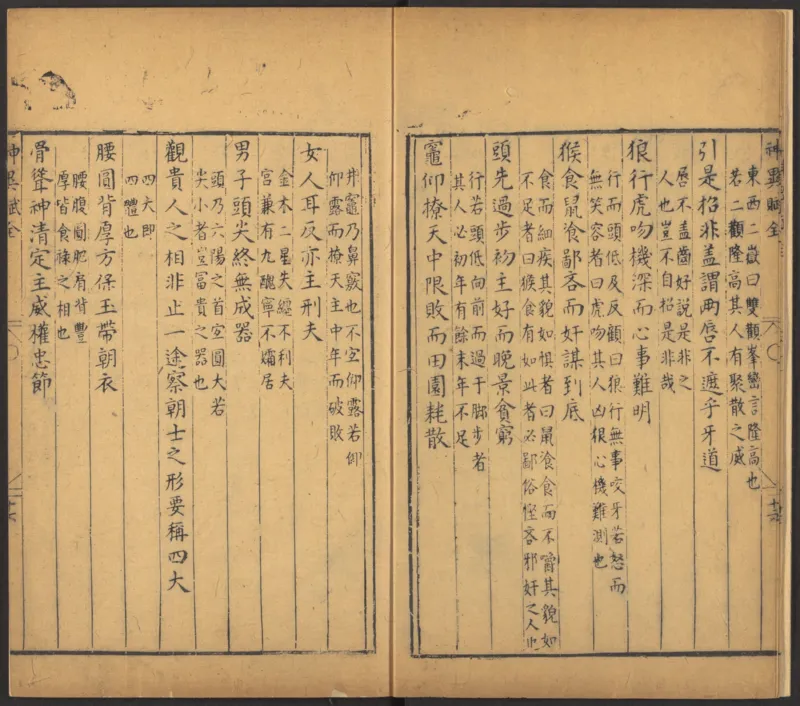 神異賦全
十六
東西二嶽曰雙顴峯巒言隆高也
若二顴隆高其人有聚散之威
引是招非盖謂两唇不遮乎牙道
唇不盖齒好説是非之
人也豈不自招是非哉
狼行虎吻機深而心事難明
行而頭低及反顧曰狼行無事咬牙若怒而
無笑容者曰虎吻其人凶狠心機難測也
猴食鼠飡鄙吝而奸謀到底
食而細疾其貌如惧者曰鼠飡食而不嚼其貌如
不足者曰猴食有如此者必鄙俗慳吝邪奸之人也
頭先過步初主好而晚景貧窮
行若頭低向前而過于脚步者
其人必初年有餘末年不足
竈仰撩天中限敗而田園耗散
井竈乃鼻竅也不宜仰露若仰
仰露而掩天主中年而破敗
女人耳反亦主刑夫
金木二星失纏不利夫
宮兼有九醜寧不孀居
男子頭尖終無成器
頭乃六陽之首宜圓大若
尖小者豈冨貴之器也
觀貴人之相非止一途察朝士之形要稱四大
四大即
四體也
腰圓背厚方保玉帶朝衣
腰腹圓肥肩背豐
厚皆食祿之相也
骨聳神清定主威權忠節
神異賦全
十六